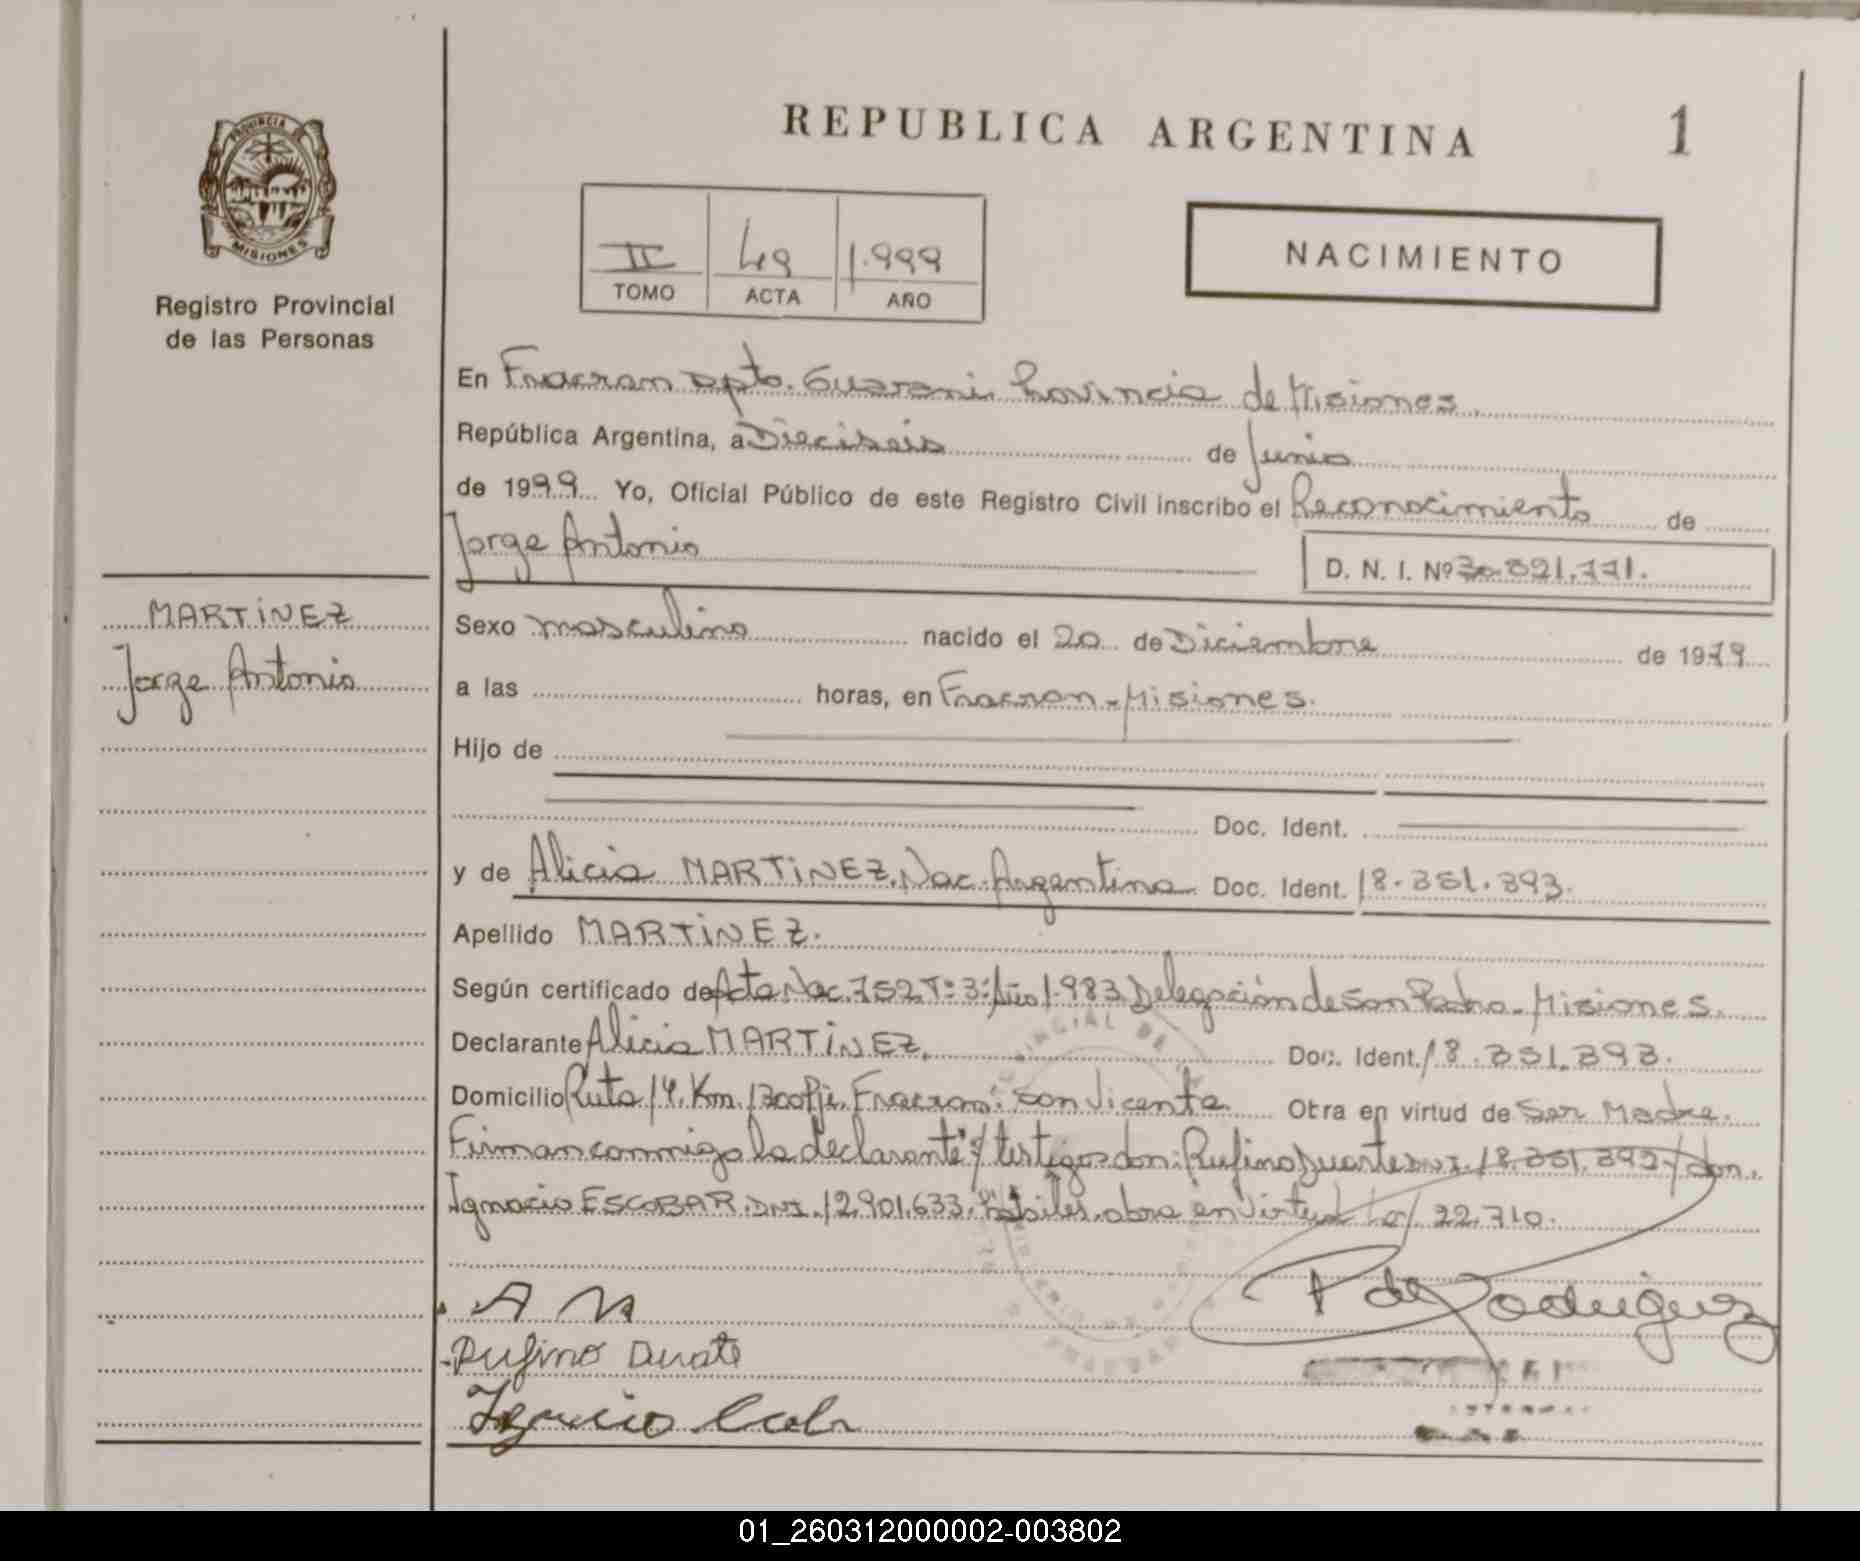 REPUBLICA ARGENTINA
1
PROVINCIA DE
MISIONES
Registro Provincial
de las Personas
II
49
1.999
TOMO
ACTA
AÑO
NACIMIENTO
En Fracran Dpto. Guarani Provincia de Misiones
República Argentina, a Dieciseis de Junio
de 1999 Yo, Oficial Público de este Registro Civil inscribo el Reconocimiento de
Jorge Antonio
D. N. I. Nº 30.821.771.
MARTINEZ
Jorge Antonio
Sexo masculino nacido el 20 de Diciembre de 1979
a las horas, en Fracran - Misiones.
Hijo de
Doc. Ident.
y de Alicia MARTINEZ. Nac. Argentina Doc. Ident. 18.351.393.
Apellido MARTINEZ.
Según certificado de Acta Nac. 752 Tº 3º Año 1.983 Delegación de San Pedro - Misiones.
Declarante Alicia MARTINEZ. Doc. Ident. 18.351.393.
Domicilio Ruta 14. Km. Fracran: San Vicente Otra en virtud de Ser Madre.
Firman conmigo la declarante y testigos don: Rufino Duarte DNI. 18.351.392 y don.
Ignacio ESCOBAR. DNI. 12.901.633. habiles, obra en virtud Ley 22.710.
A M
Rufino Duarte
Ignacio
Rodriguez
01_260312000002-003802